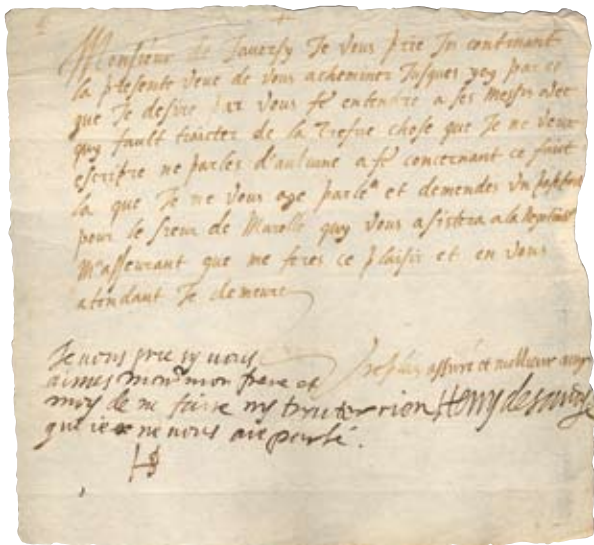 Monsieur de Javersy Je vous prie In contenant
la presente veue de vous acheminer Jusques ycy parce
que Je desire par vous fe entendre a ses Messrs avec
quy fault traicter de la Trefve chose que Je ne veux
escripre ne parles d'aulcune afe concernant ce faict
la que Je ne vous aye parle et demendes un passeport
pour le sieur de Marolle quy vous asistera a la
M'asseurant que me feres ce plaisir et en vous
atendant Je demeure
Je vous prie sy vous
aimes monsr mon frere et
moy de ne faire ny truter rien
que ie ne vous aie parlé.
HS
Vre plus assuré et meilleur amy
Henry de Savoye